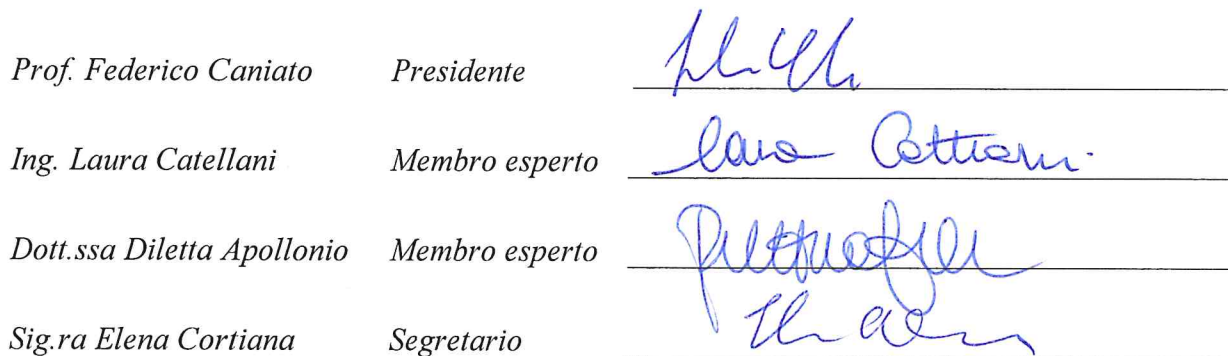 Prof. Federico Caniato Presidente
Ing. Laura Catellani Membro esperto Laura Catellani
Dott.ssa Diletta Apollonio Membro esperto
Sig.ra Elena Cortiana Segretario